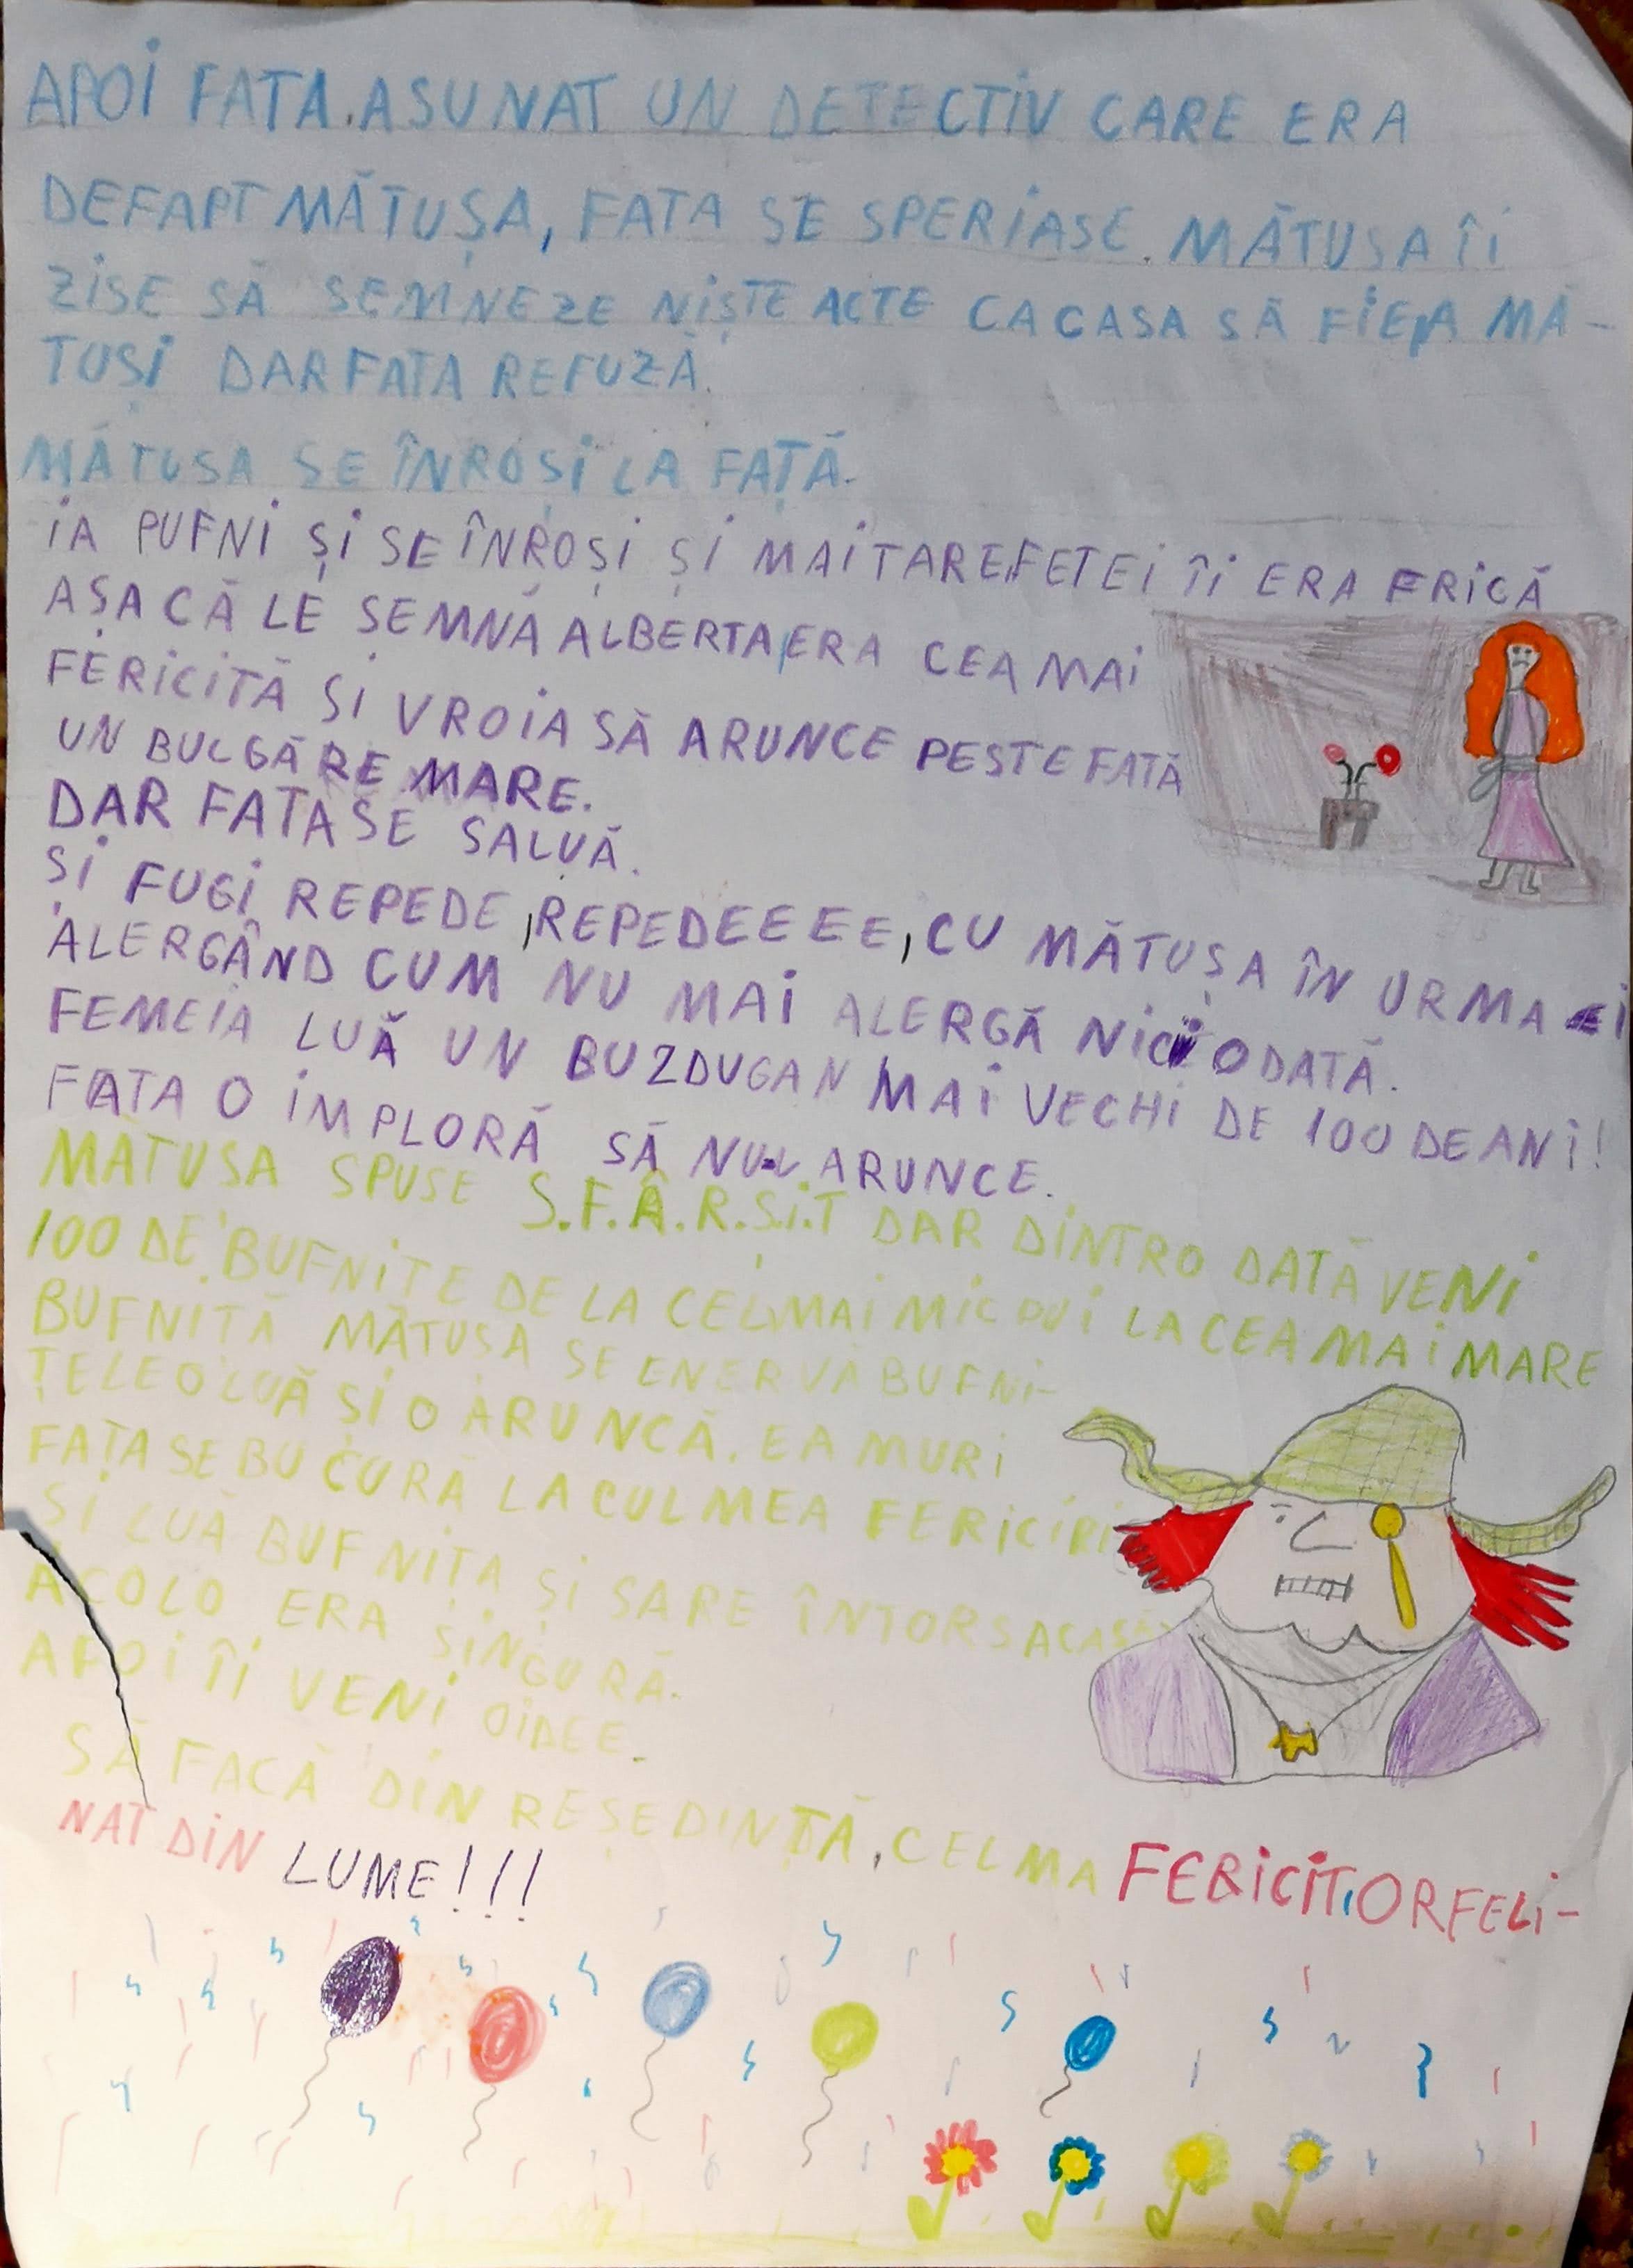 APOI FATA. A SUNAT UN DETECTIV CARE ERA
DEFAPT MĂTUȘA, FATA SE SPERIASE. MĂTUSA ÎI
ZISE SĂ SEMNEZE NIȘTE ACTE CA CASA SĂ FIE A MĂ-
TUȘI DAR FATA REFUZĂ.
MĂTUSA SE ÎNROȘI LA FAȚĂ.
IA PUFNI ȘI SE ÎNROȘI ȘI MAI TARE, FETEI ÎI ERA FRICĂ
AȘA CĂ LE SEMNĂ ALBERTA, ERA CEA MAI
FERICITĂ SI VROIA SĂ ARUNCE PESTE FATĂ
UN BULGĂRE MARE.
DAR FATA SE SALVĂ.
ȘI FUGI REPEDE, REPEDEEEE, CU MĂTUȘA ÎN URMA EI
ALERGÂND CUM NU MAI ALERGĂ NICI ODATĂ.
FEMEIA LUĂ UN BUZDUGAN MAI VECHI DE 100 DE ANI!
FATA O IMPLORĂ SĂ NU-L ARUNCE.
MĂTUSA SPUSE S.F.Â.R.S.I.T DAR DINTRO DATĂ VENI
100 DE BUFNIȚE DE LA CEL MAI MIC PUI LA CEA MAI MARE
BUFNIȚĂ MĂTUSA SE ENERVĂ BUFNI-
ȚELE O LUĂ ȘI O ARUNCĂ. EA MURI
FATA SE BUCURĂ LA CULMEA FERICIRI
SI LUĂ BUFNIȚA ȘI SARE ÎNTORS ACASĂ
ACOLO ERA SINGURĂ.
APOI ÎI VENI OIDEE.
SĂ FACĂ DIN REȘEDINȚĂ, CEL MA FERICIT, ORFELI-
NAT DIN LUME!!!